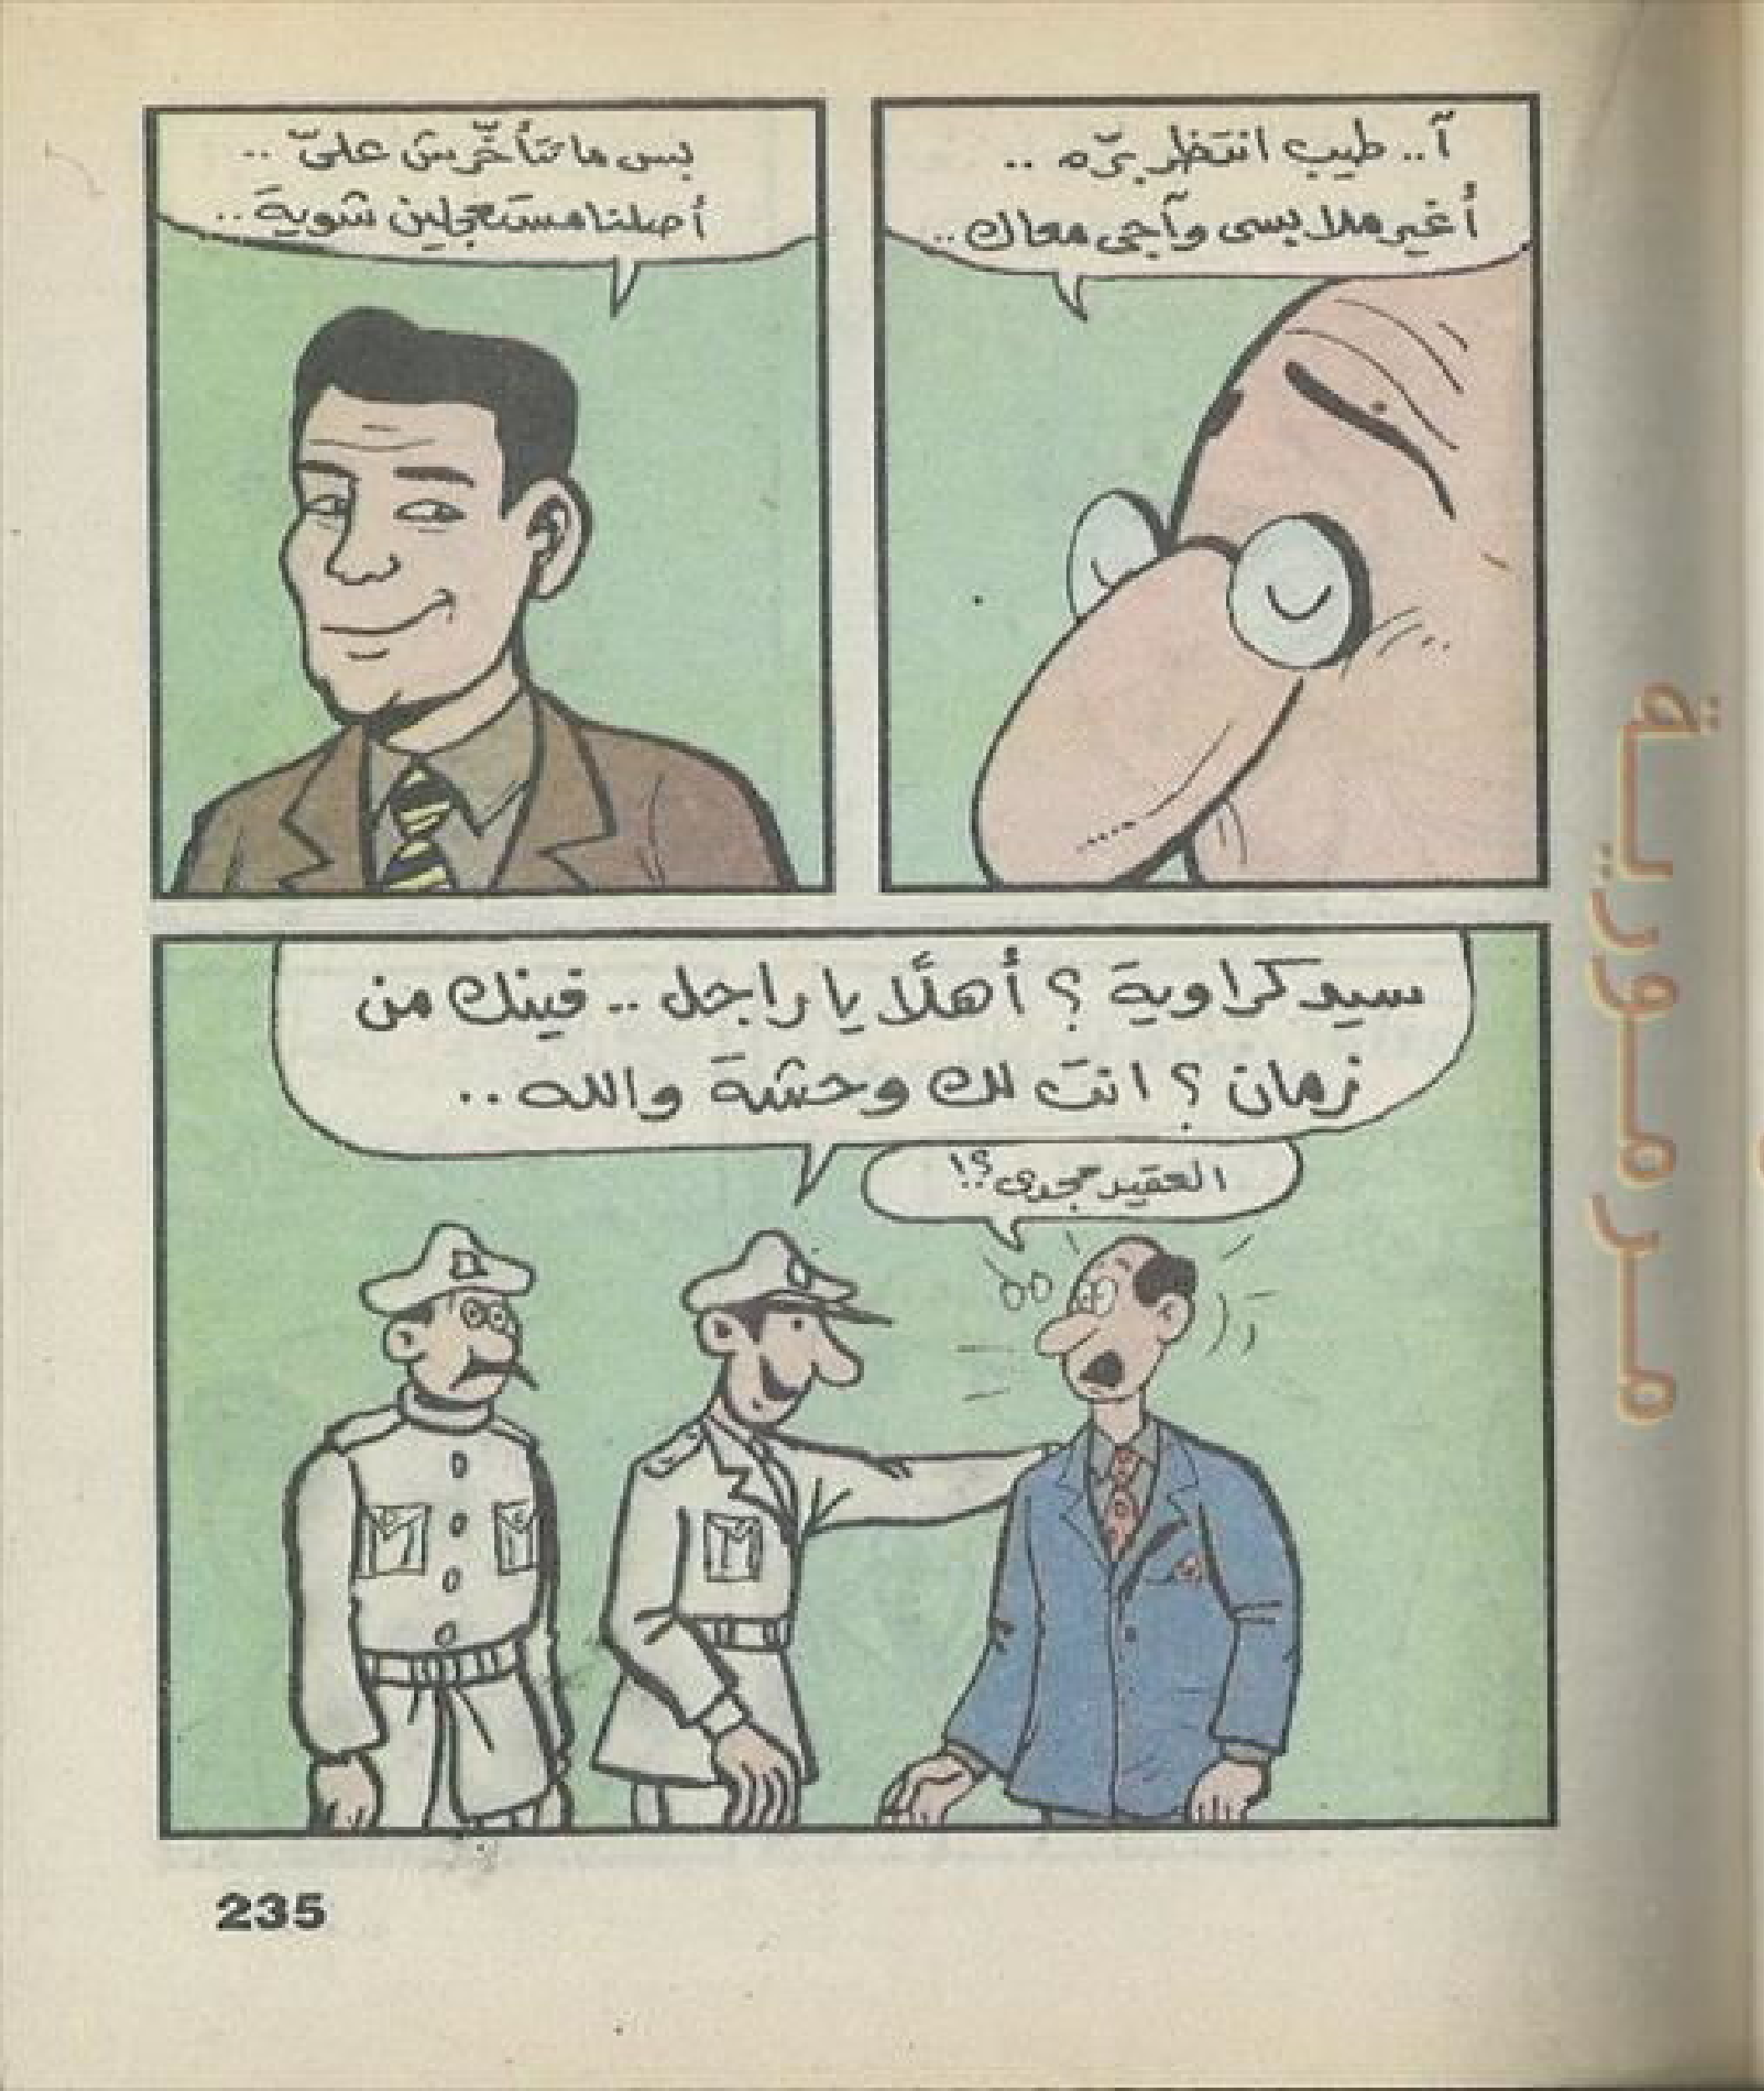 آ.. طيب انتظر برّه ..
أغير ملابسى وآجى معاك ..
بس ما تتأخّرش علىّ ..
أصلنا مستعجلين شوية ..
سيد كراوية ؟ أهلًا يا راجل .. فينك من
زمان ؟ انت لك وحشة والله ..
العقيد مجدى ؟!
مرمورية
235